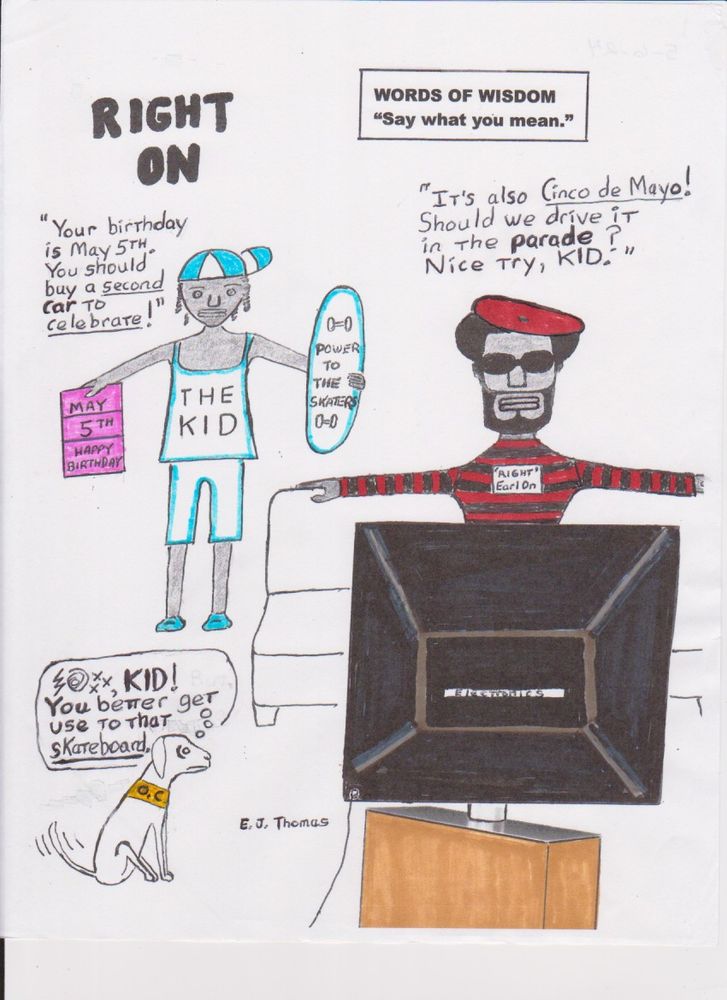 RIGHT
ON
WORDS OF WISDOM
“Say what you mean.”
"Your birthday
is May 5TH.
You should
buy a second
car to
celebrate!"
"It's also Cinco de Mayo!
Should we drive it
in the parade?
Nice try, KID."
THE
KID
0=0
POWER
TO
THE
SKATERS
0=0
MAY
5TH
HAPPY
BIRTHDAY
'RIGHT'
Earl On
Electronics
KID!
You better get
use to that
skateboard.
O.C
E.J. Thomas